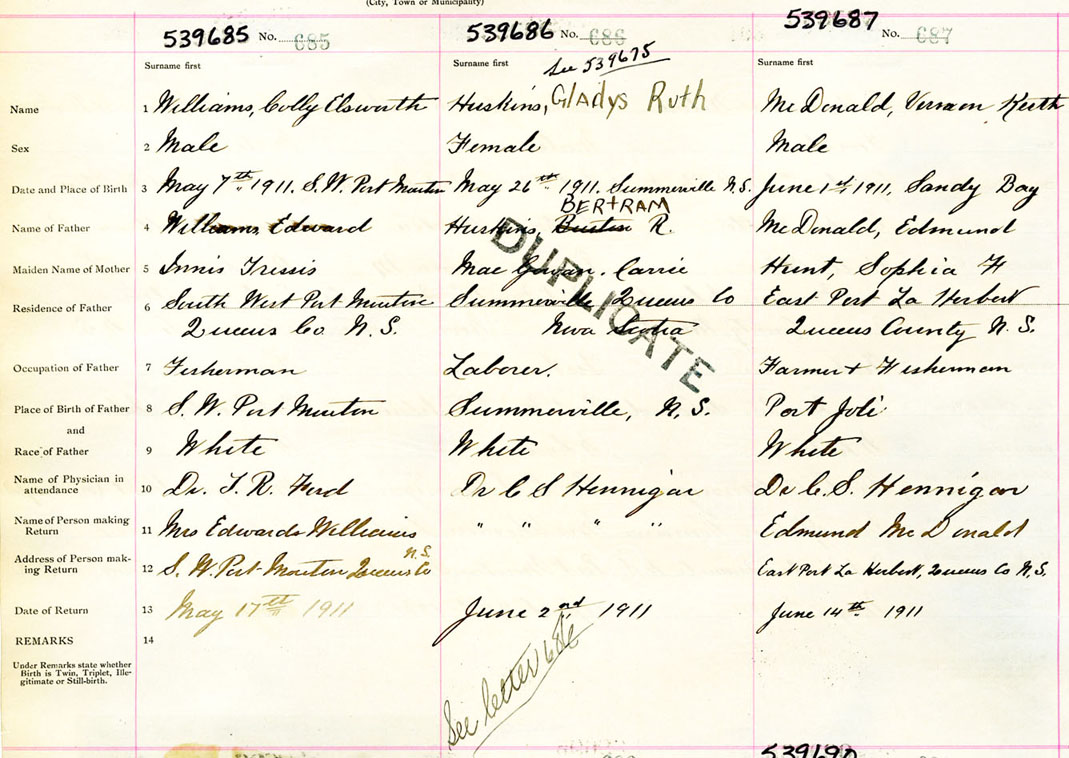 (City, Town or Municipality)
539685 No. 685
539686 No. 686
539687 No. 687
Surname first
Surname first
See 539675
Surname first
Name 1 Williams, Colly Elsworth
Huskins, Gladys Ruth
McDonald, Vernon Keith
Sex 2 Male
Female
Male
Date and Place of Birth 3 May 7th 1911. S.W. Port Mouton
May 26th 1911. Summerville N.S.
June 1st 1911, Sandy Bay
BERTRAM
Name of Father 4 Williams, Edward
Huskins, Burton R.
McDonald, Edmund
Maiden Name of Mother 5 Innis Tressis
Mac Gowan. Carrie
Hunt, Sophia H
Residence of Father 6 South West Port Mouton
Queens Co N.S.
Summerville Queens Co
Nova Scotia
East Port La Herbert
Queens County N.S.
DUPLICATE
Occupation of Father 7 Fisherman
Laborer.
Farmer + Fisherman
Place of Birth of Father 8 S.W. Port Mouton
Summerville, N.S.
Port Joli
and
Race of Father 9 White
White
White
Name of Physician in
attendance 10 Dr. T. R. Ford
Dr C S Hennigar
Dr C. S. Hennigar
Name of Person making
Return 11 Mrs Edwards Williams
" " " "
Edmund McDonald
Address of Person mak-
ing Return 12 S. W. Port Mouton Queens Co N.S.
East Port La Herbert, Queens Co N.S.
Date of Return 13 May 17th 1911
June 2nd 1911
June 14th 1911
REMARKS 14
See letter 686
Under Remarks state whether
Birth is Twin, Triplet, Ille-
gitimate or Still-birth.
539690